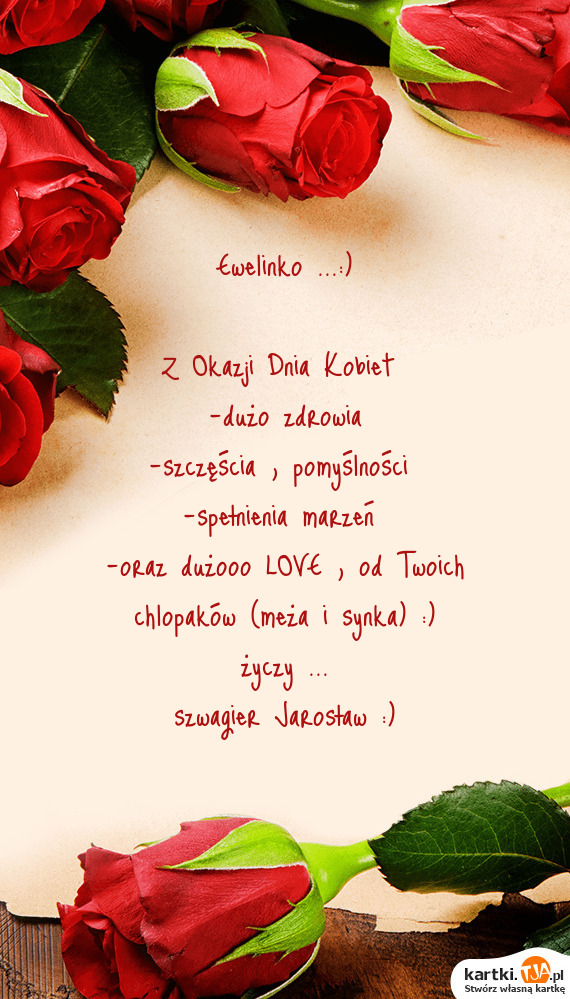 Ewelinko ...:)
Z Okazji Dnia Kobiet
-dużo zdrowia
-szczęścia , pomyślności
-spełnienia marzeń
-oraz dużooo LOVE , od Twoich
chlopaków (meża i synka) :)
życzy ...
szwagier Jarosław :)
kartki.TJA.pl
Stwórz własną kartkę